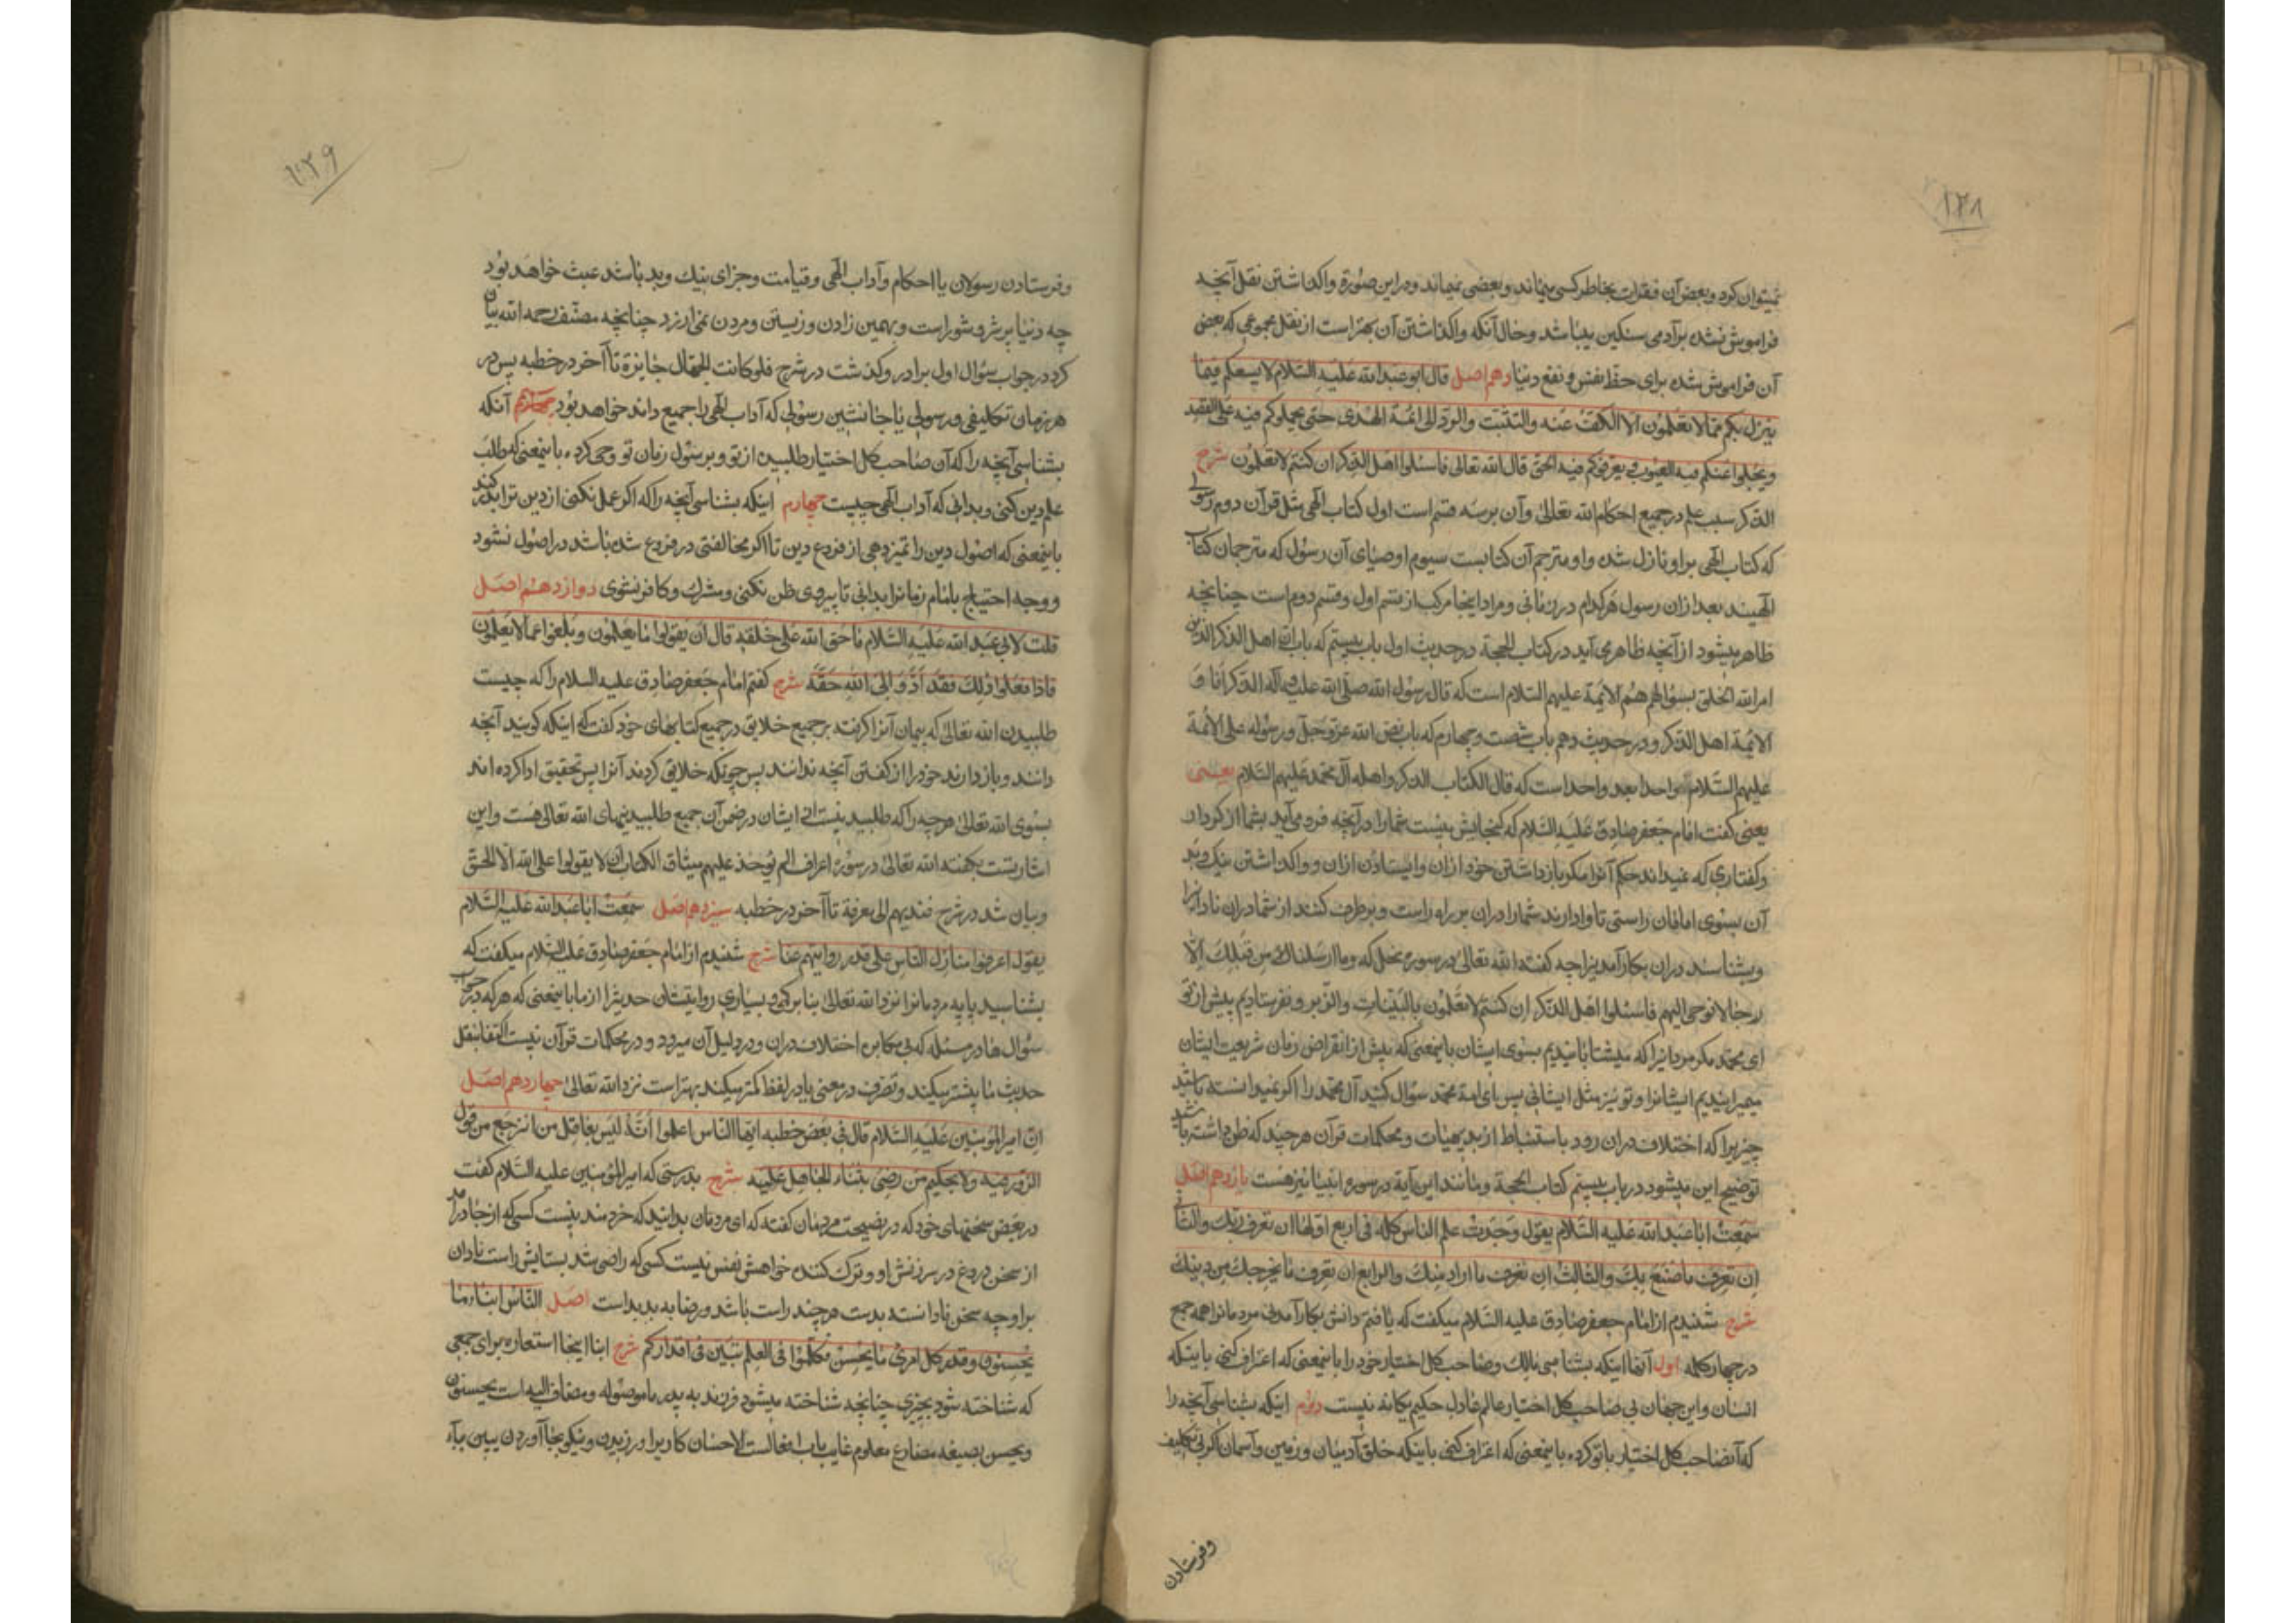 ۱۳۸
نمیتوان کرد و بعض آن فقرات بخاطر کسی میماند و بعضی نمیماند و در این صورة واکذاشتن نقل آنچه
فراموش نشده بر آدمی سنکین میباشد و حال آنکه واکذاشتن آن بهتر است از نقل مجموعی که بعض
آن فراموش شده برای حظ نفس و نفع دنیا دهم اصل قال ابو عبد الله علیه السلام لا یسعکم فیما
ینزل بکم مما لا تعلمون الا الکف عنه و التثبت و الرد الی ائمة الهدی حتی یحملوکم فیه علی القصد
و یجلوا عنکم فیه العمی و یعرفوکم فیه الحق قال الله تعالی فاسئلوا اهل الذکر ان کنتم لا تعلمون شرح
الذکر سبب علم در جمیع احکام الله تعالی و آن بر سه قسم است اول کتاب الهی مثل قرآن دوم رسولی
که کتاب الهی بر او نازل شده و او مترجم آن کتابست سیوم اوصیای آن رسول که مترجمان کتاب
الهیند بعد از ان رسول هر کدام در زمانی و مراد اینجا مرکب از قسم اول و قسم دوم است چنانچه
ظاهر میشود از آنچه ظاهر می آید در کتاب الحجة در حدیث اول باب بیستم که باب ان اهل الذکر الذین
امر الله الخلق بسؤالهم هم الائمة علیهم السلام است که قال رسول الله صلی الله علیه و آله الذکر انا و
الائمة اهل الذکر و در حدیث دهم باب شصت و چهارم که باب نص الله عز و جل و رسوله علی الائمة
علیهم السلام واحدا بعد واحد است که قال الکتاب الذکر و اهله آل محمد علیهم السلام یعنی
یعنی کفت امام جعفر صادق علیه السلام که کنجایش نیست شما را در آنچه فرود می آید بشما از کردار
و کفتاری که نمیداند حکم آنرا مکر باز داشتن خود از ان و ایستادن از ان و واکذاشتن نیک و بد
آن بسوی امامان راستی تا وادارند شما را در ان بر راه راست و بر طرف کنند از شما در ان نادانیرا
و بشناسند در ان بکار آمدنیرا چه کفت الله تعالی در سوره نحل که و ما ارسلناک من قبلک الا
رجالا نوحی الیهم فاسئلوا اهل الذکر ان کنتم لا تعلمون بالبینات و الزبر و نفرستادیم پیش از تو
ای محمد مکر مردانیرا که میشتابانیدیم بسوی ایشان باینمعنی که پیش از انقراض زمان شریعت ایشان
میمیرانیدیم ایشانرا و تو نیز مثل ایشانی پس ای امة محمد سؤال کنید آل محمد را اکر نمیدانسته باشید
چیزیرا که اختلاف در ان رود باستنباط از بدیهیات و محکمات قرآن هر چند که داشته باشد
توضیح این میشود در باب بیستم کتاب الحجة و مانند این آیة در سوره انبیا نیز هست یازدهم اصل
سمعت ابا عبد الله علیه السلام یقول وجدت علم الناس کله فی اربع اولها ان تعرف ربک و الثانی
ان تعرف ما صنع بک و الثالث ان تعرف ما اراد منک و الرابع ان تعرف ما یخرجک من دینک
شرح شنیدم از امام جعفر صادق علیه السلام میکفت که یافتم دانش بکار آمدنی مردمانرا همه جمع
در چهار کلمه اول آنها اینکه بشناسی مالک و صاحب کل اختیار خود را باینمعنی که اعتراف کنی باینکه
انسان و این جهان بی صاحب کل اختیار عالم عادل حکیم یکانه نیست دوم اینکه بشناسی آنچه را
که آنصاحب کل اختیار با تو کرده باینمعنی که اعتراف کنی باینکه خلق آدمیان و زمین و آسمان اکر بی تکلیف
و فرستادن
۱۳۹
و فرستادن رسولان با احکام و آداب الهی و قیامت و جزای نیک و بد باشد عبث خواهد بود
چه دنیا پر شر و شور است و بهمین زادن و زیستن و مردن نمی ارزد چنانچه مصنف رحمه الله بیان
کرد در جواب سؤال اول برادر و کذشت در شرح فلو کانت الجهال جایزة تا آخر در خطبه پس در
هر زمان تکلیفی و رسولی یا جانشین رسولی که آداب الهی را جمیع داند خواهد بود آنکه
بشناسی آنچه را که آن صاحب کل اختیار طلبیده از تو و بر رسول زمان تو وحی کرده باینمعنی که طلب
علم دین کنی و بدانی که آداب الهی چیست چهارم اینکه بشناسی آنچه را که اکر عمل نکنی از دین ترا بدر کند
باینمعنی که اصول دین را تمیز دهی از فروع دین تا اکر مخالفتی در فروع شده باشد در اصول نشود
و وجه احتیاج بامام زمانرا بدانی تا پیروی ظن نکنی و مشرک و کافر نشوی دوازدهم اصل
قلت لابی عبد الله علیه السلام ما حق الله علی خلقه قال ان یقولوا ما یعلمون و یکفوا عما لا یعلمون
فاذا فعلوا ذلک فقد ادوا الی الله حقه شرح کفتم امام جعفر صادق علیه السلام را که چیست
طلبیدن الله تعالی که پیمان آنرا کرفته بر جمیع خلایق در جمیع کتابهای خود کفت که اینکه کویند آنچه
دانند و باز دارند خود را از کفتن آنچه ندانند پس چونکه خلایق کردند آنرا پس تحقیق ادا کرده اند
بسوی الله تعالی هر چه را که طلبیدنیست از ایشان در ضمن آن جمیع طلبیدنیهای الله تعالی هست و این
اشارتست بکفته الله تعالی در سوره اعراف الم یؤخذ علیهم میثاق الکتاب ان لا یقولوا علی الله الا الحق
و بیان شد در شرح فندبهم الی معرفة تا آخر در خطبه سیزدهم اصل سمعت ابا عبد الله علیه السلام
یقول اعرفوا منازل الناس علی قدر روایتهم عنا شرح شنیدم از امام جعفر صادق علیه السلام میکفت که
بشناسید پایه مردمانرا نزد الله تعالی بنا بر کمی و بسیاری روایتشان حدیثرا از ما باینمعنی که هر که در جواب
سؤال ها در مسئله که بی مکابره اختلاف در ان و در دلیل آن میرود و در محکمات قرآن نیست اکتفا بنقل
حدیث ما بیشتر میکند و تصرف در معنی یا در لفظ کمتر میکند بهتر است نزد الله تعالی چهاردهم اصل
ان امیر المؤمنین علیه السلام قال فی بعض خطبه ایها الناس اعلموا انه لیس بعاقل من انزعج من قول
الزور فیه و لا بحکیم من رضی بثناء الجاهل علیه شرح بدرستی که امیر المؤمنین علیه السلام کفت
در بعض سخنهای خود که در نصیحت مردمان کفته که ای مردمان بدانید که خردمند نیست کسی که از جا در آمد
از سخن دروغ در سرزنش او و ترک کننده خواهش نفس نیست کسی که راضی شد بستایش راست نادان
بر او چه سخن نادانسته بدست هر چند راست باشد و رضا به بد بد است اصل الناس ابناء ما
یحسنون و قدر کل امرئ ما یحسن فتکلموا فی العلم تبین فی اقدارکم شرح ابنا اینجا استعاره برای جمعی
که شناخته شود بچیزی چنانچه شناخته میشود فرزند به پدر ما موصوله و مضاف الیه است یحسنون
و یحسن بصیغه مضارع معلوم غایب باب افعالست الاحسان کاریرا ورزیدن و نیکو بجا آوردن